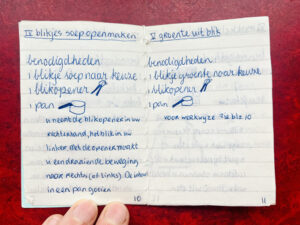 IV blikjes soep openmaken
benodigdheden:
1 blikje soep naar keuze
1 blikopener
1 pan
u neemt de blikopener in uw
rechterhand, het blik in uw
linker. met de opener maakt
u een draaiende beweging
naar rechts (of links). De inhoud
in een pan gooien
10
V groente uit blik
benodigdheden:
1 blikje groente naar keuze
1 blikopener
1 pan
voor werkwijze zie blz 10
11